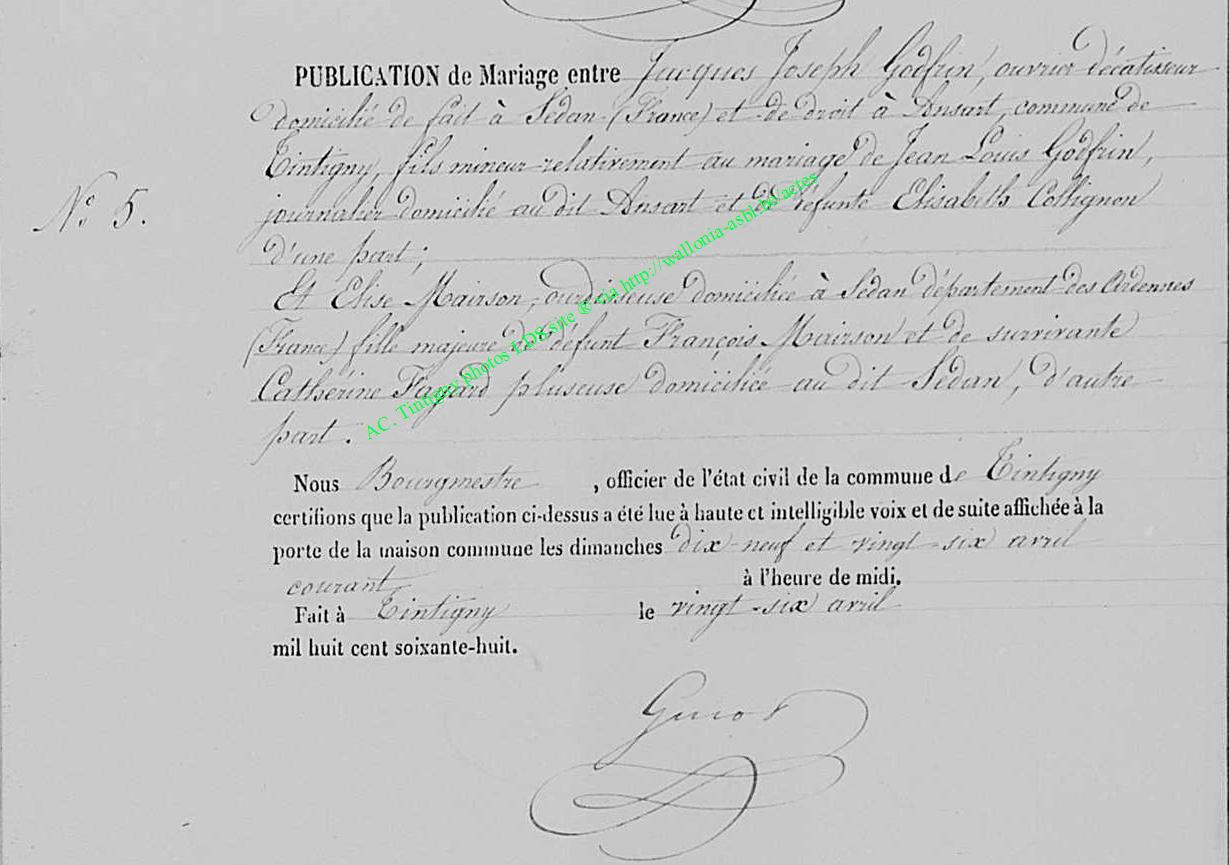 PUBLICATION de Mariage entre Jacques Joseph Godfrin, ouvrier décatisseur
domicilié de fait à Sedan (France) et de droit à Ansart, commune de
Tintigny, fils mineur relativement au mariage de Jean Louis Godfrin,
N° 5.
journalier domicilié au dit Ansart et de défunte Elisabeth Collignon
d'une part;
Et Elise Mairson, ourdisseuse domiciliée à Sedan département des Ardennes
(France) fille majeure de défunt François Mairson et de survivante
Catherine Fagard pluseuse domiciliée au dit Sedan, d'autre
part.
AC. Tintigny photos EDS site ® via http://wallonia-asbl.be/actes
Nous Bourgmestre, officier de l'état civil de la commune de Tintigny
certifions que la publication ci-dessus a été lue à haute et intelligible voix et de suite affichée à la
porte de la maison commune les dimanches dix-neuf et vingt-six avril
courant à l'heure de midi.
Fait à Tintigny le vingt-six avril
mil huit cent soixante-huit.